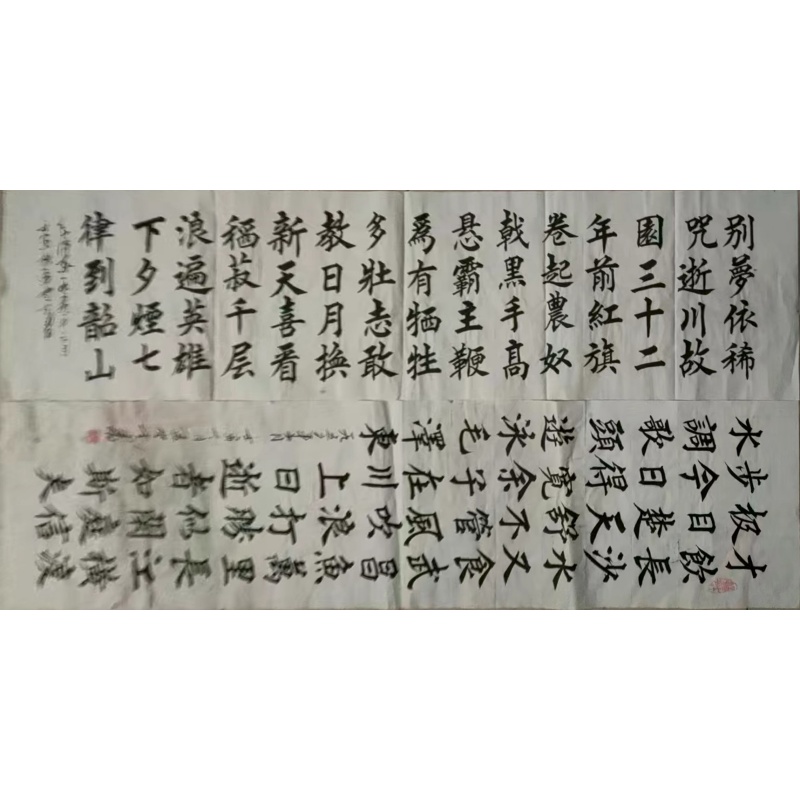 别夢依稀
咒逝川故
園三十二
年前紅旗
卷起農奴
戟黑手高
悬霸主鞭
爲有牺牲
多壯志敢
教日月换
新天喜看
稻菽千层
浪遍英雄
下夕煙七
律到韶山
才飲長沙水又食武昌魚萬里長江橫渡
极目楚天舒不管風吹浪打勝似閑庭信
步今日得寬余子在川上曰逝者如斯夫
水調歌頭遊泳毛澤東